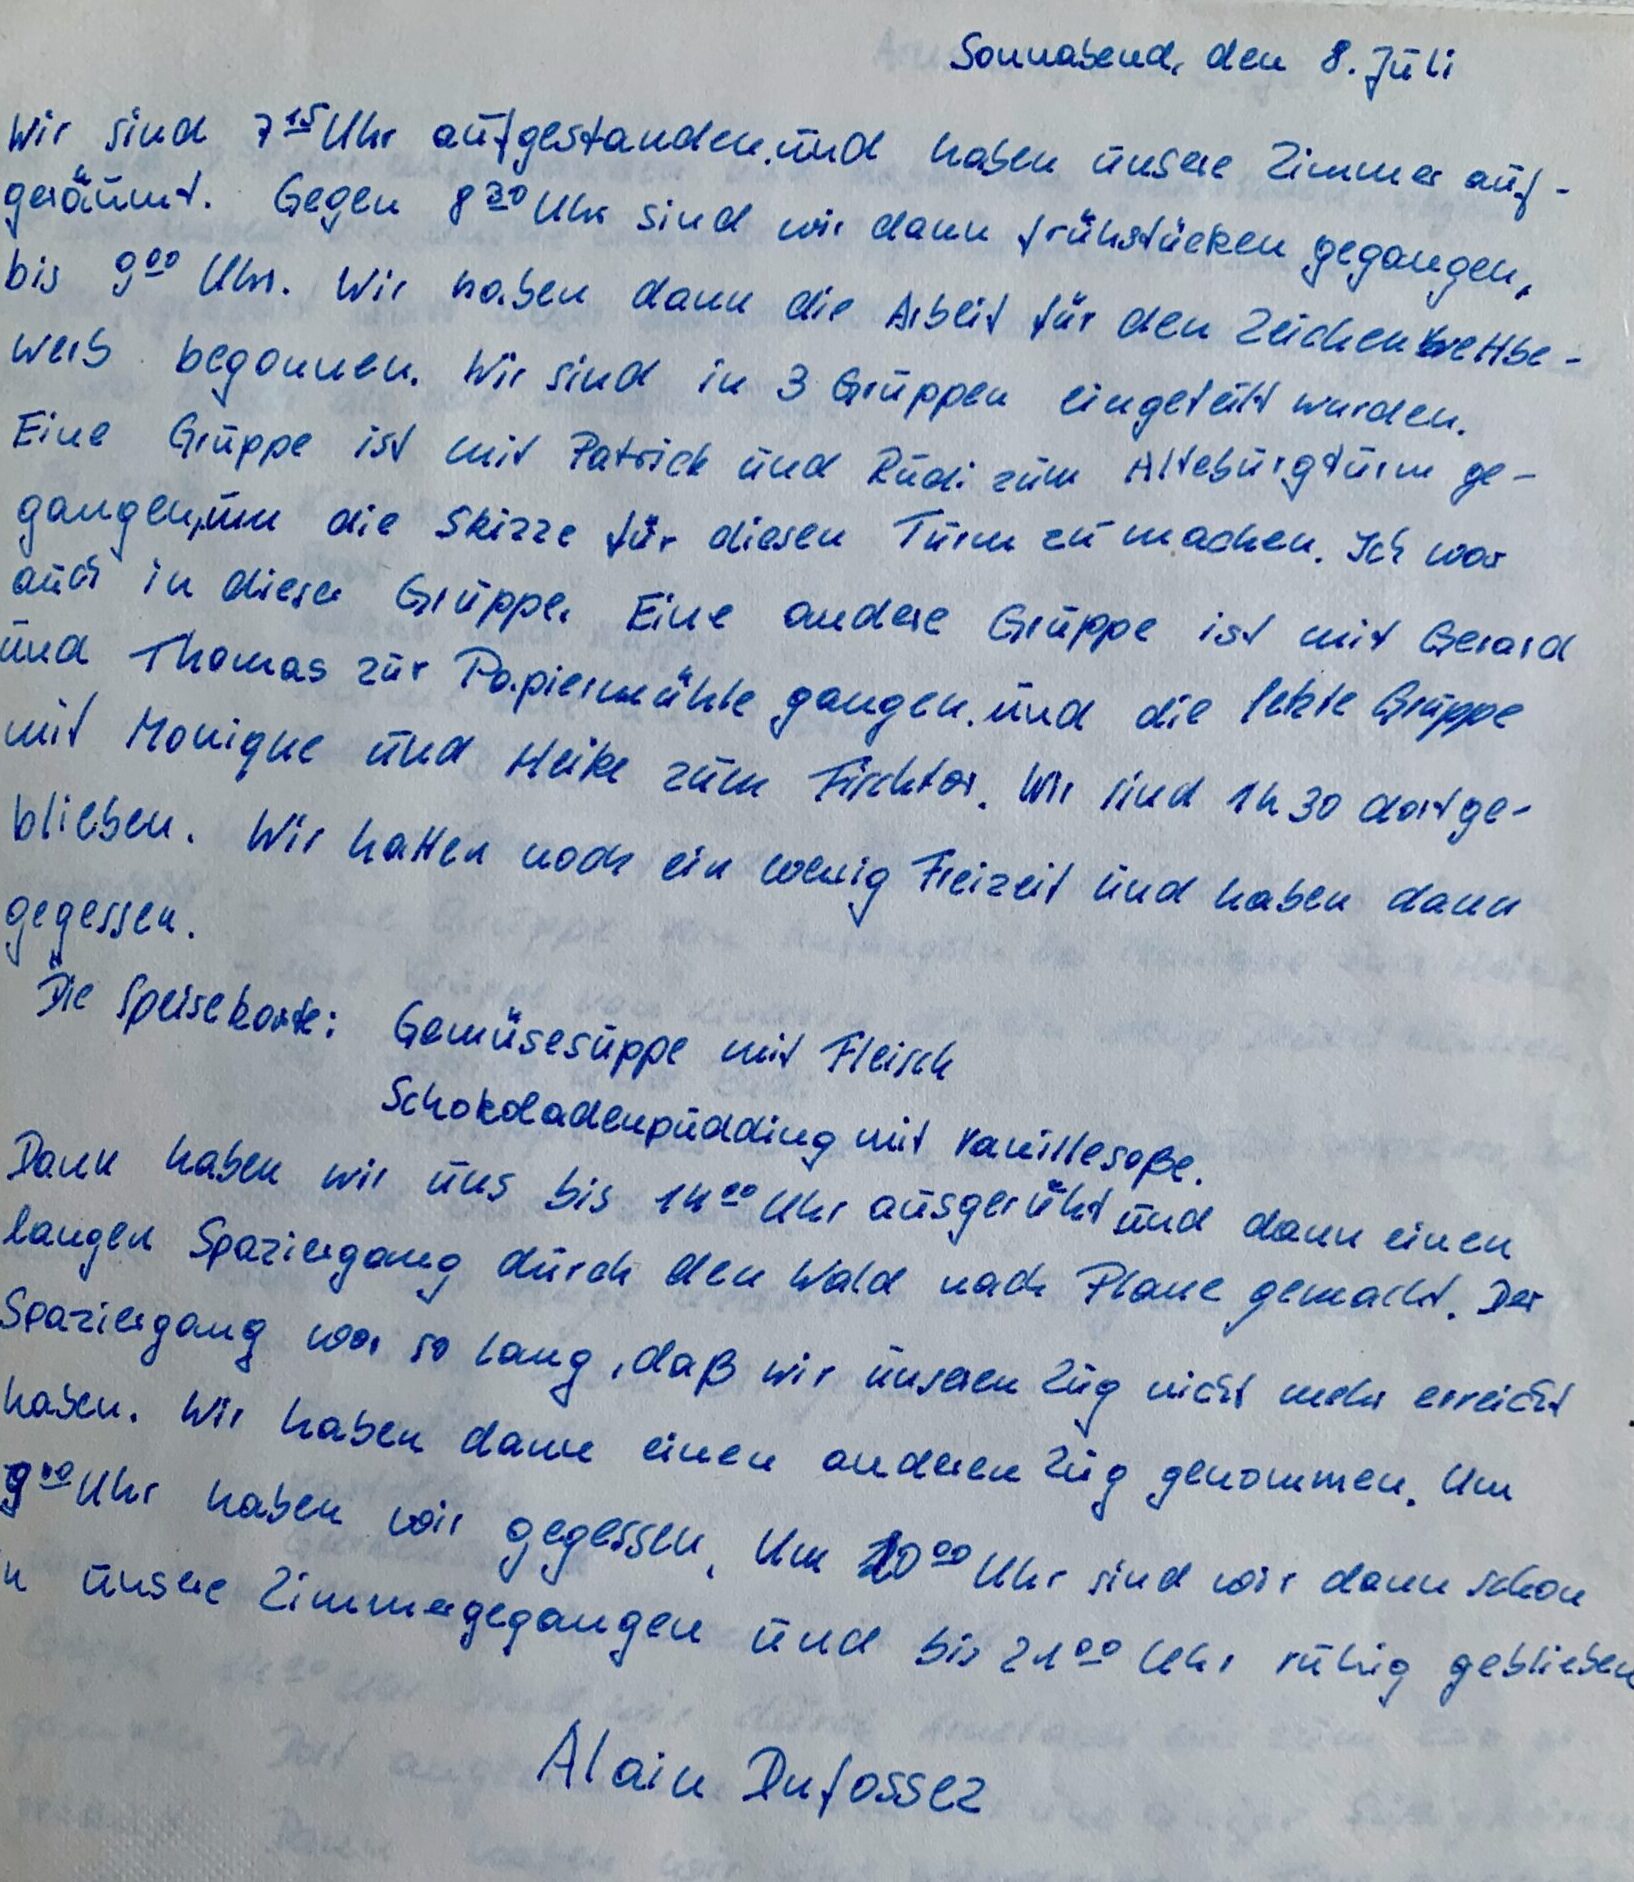 Sonnabend, den 8. Juli
Wir sind 7 15 Uhr aufgestanden, und haben unsere Zimmer auf-
geräumt. Gegen 8 30 Uhr sind wir dann frühstücken gegangen,
bis 9 00 Uhr. Wir haben dann die Arbeit für den Zeichenwettbe-
werb begonnen. Wir sind in 3 Gruppen eingeteilt wurden.
Eine Gruppe ist mit Patrick und Rudi zum Alteburgturm ge-
gangen, um die Skizze für diesen Turm zu machen. Ich war
auch in dieser Gruppe. Eine andere Gruppe ist mit Gerard
und Thomas zur Papiermühle gangen, und die letzte Gruppe
mit Monique und Heike zum Fischtor. Wir sind 1h 30 dort ge-
blieben. Wir hatten noch ein wenig Freizeit und haben dann
gegessen.
Die Speisekarte: Gemüsesuppe mit Fleisch
Schokoladenpudding mit Vanillesoße.
Dann haben wir uns bis 14 00 Uhr ausgerüht und dann einen
langen Spaziergang durch den Wald nach Plaue gemacht. Der
Spaziergang war so lang, daß wir unseren Zug nicht mehr erreicht
haben. Wir haben dann einen anderen Zug genommen. Um
9 00 Uhr haben wir gegessen. Um 20 00 Uhr sind wir dann schon
n unsere Zimmer gegangen und bis 21 00 Uhr ruhig geblieben
Alain Dufossez